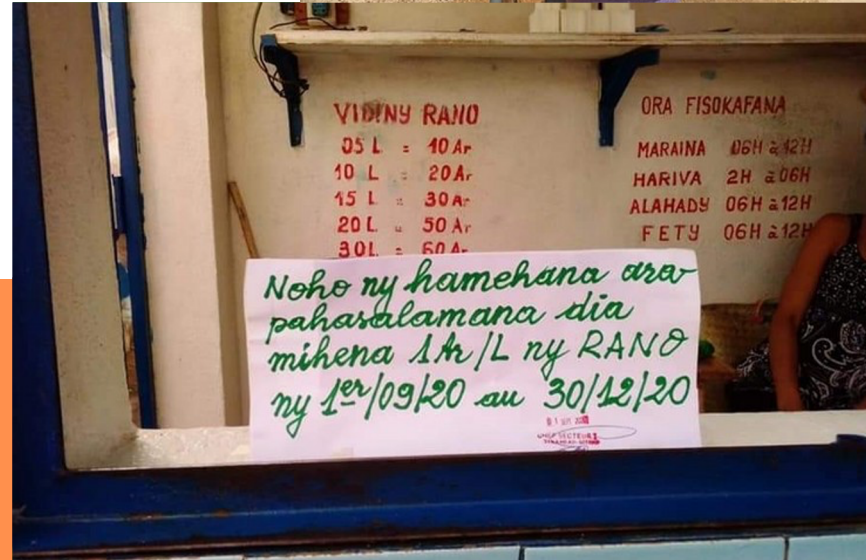 VIDINY RANO
05 L = 10 Ar
10 L = 20 Ar
15 L = 30 Ar
20 L = 50 Ar
30L = 60 Ar
ORA FISOKAFANA
MARAINA 06H à 12H
HARIVA 2H à 06H
ALAHADY 06H à 12H
FETY 06H à 12H
Noho ny hamehana ara
pahasalamana dia
mihena 1Ar/L ny RANO
ny 1er/09/20 au 30/12/20